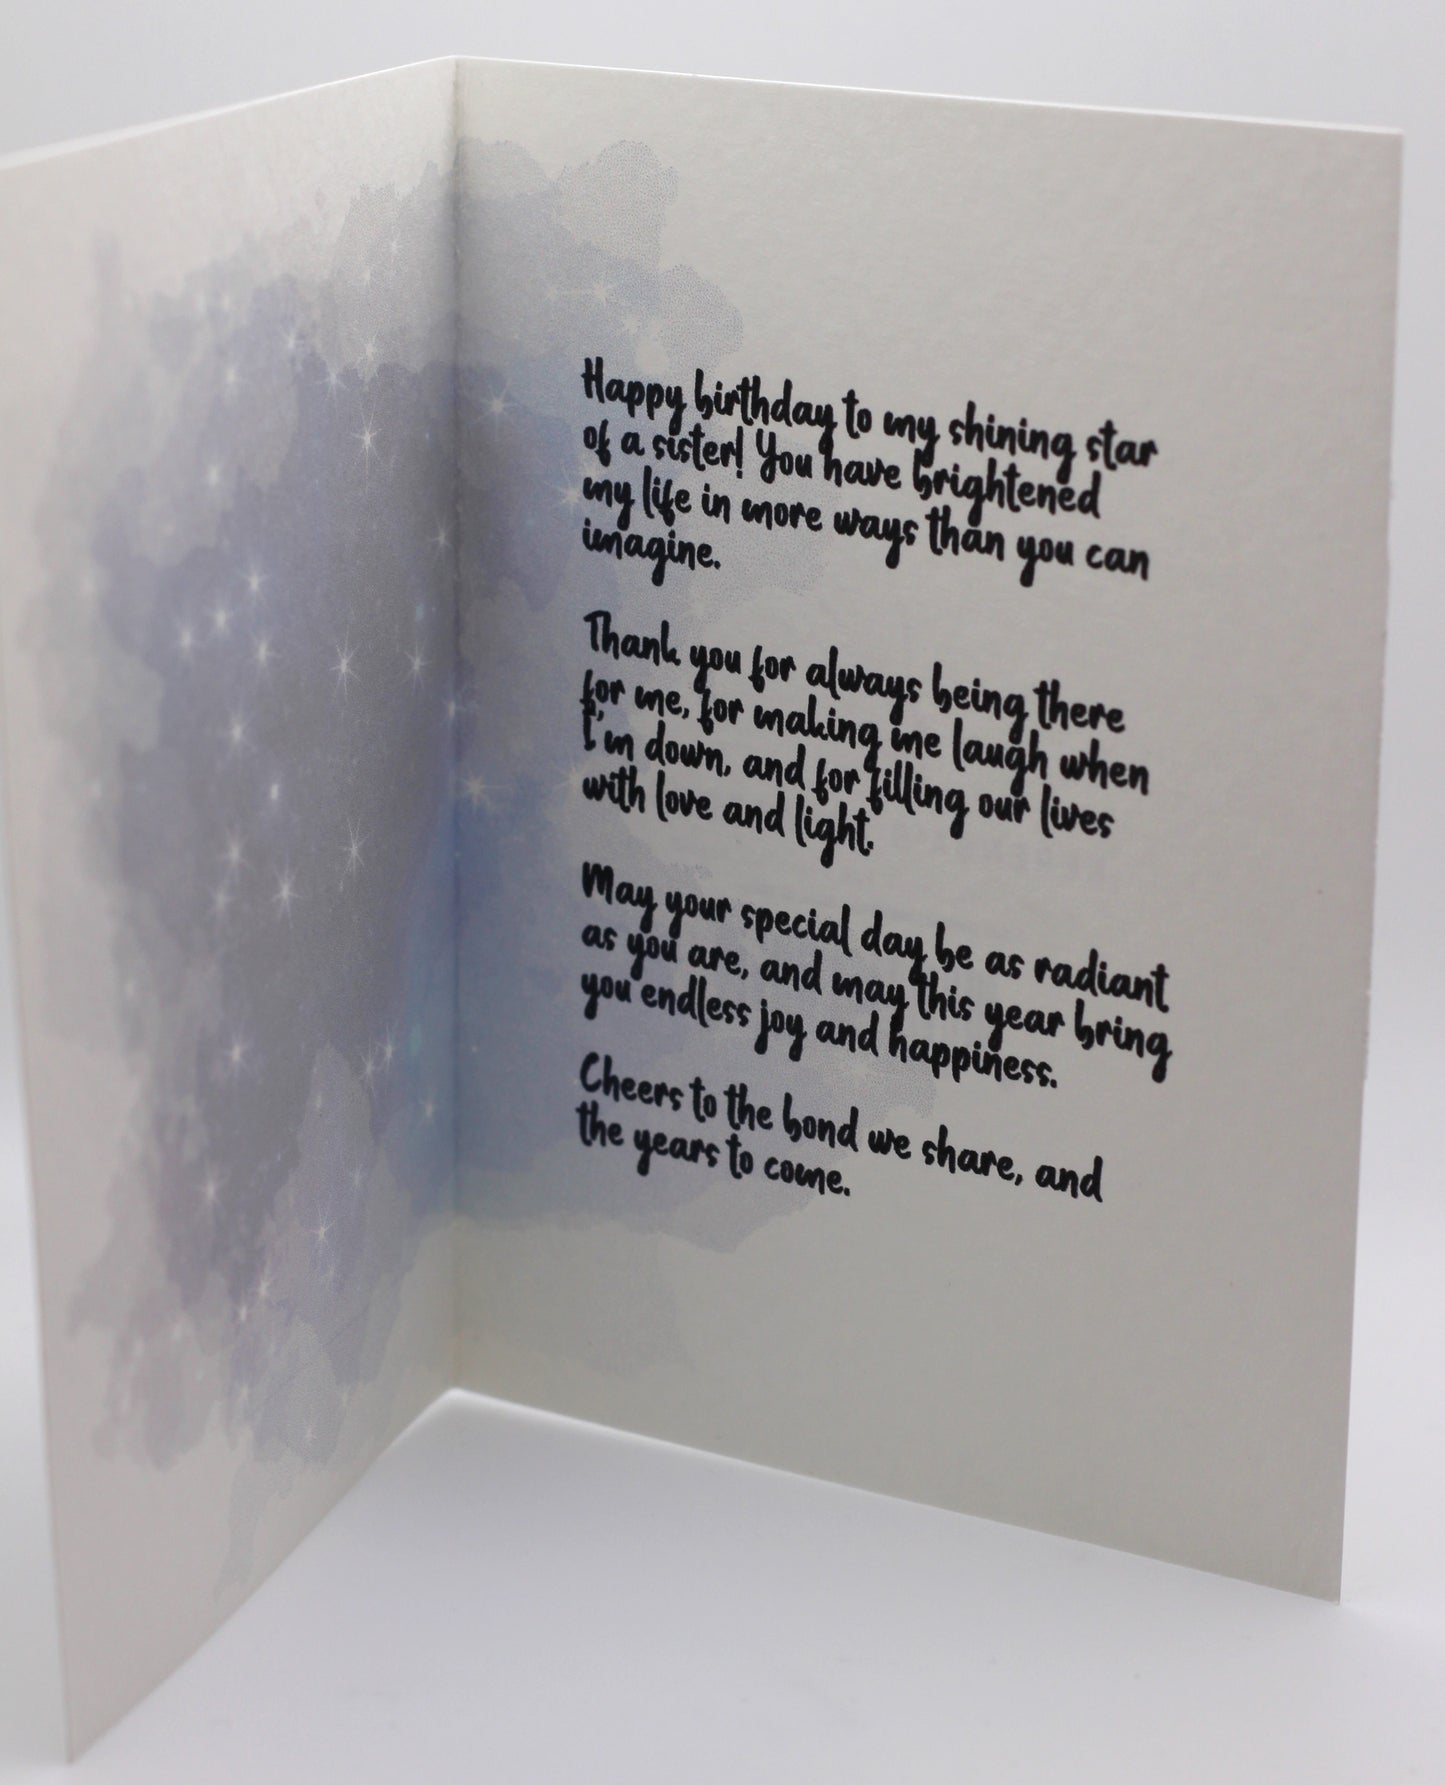 Happy birthday to my shining star
of a sister! You have brightened
my life in more ways than you can
imagine.
Thank you for always being there
for me, for making me laugh when
I'm down, and for filling our lives
with love and light.
May your special day be as radiant
as you are, and may this year bring
you endless joy and happiness.
Cheers to the bond we share, and
the years to come.